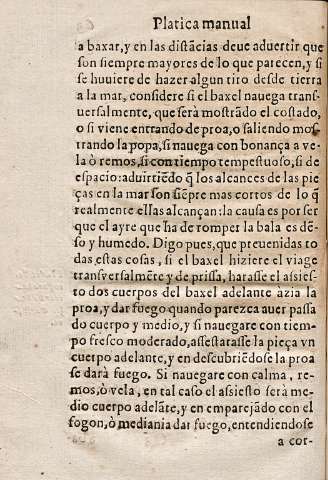 Platica manual
a baxar, y en las distãcias deue aduertir que
son siempre mayores de lo que parecen, y si
se huuiere de hazer algun tiro desde tierra
a la mar, considere si el baxel nauega trans-
uersalmente, que serà mostrãdo el costado,
o si viene entrando de proa, o saliendo mos
trando la popa, si nauega con bonança a ve-
la ò remos, si con tiempo tempestuoso, si de
espacio: aduirtiẽdo q̃ los alcances de las pie
ças en la mar son siẽpre mas cortos de lo q̃
realmente ellas alcançan: la causa es por ser
que el ayre que ha de romper la bala es dẽ-
so y humedo. Digo pues, que preuenidas to
das estas cosas, si el baxel hiziere el viage
transversalmẽte y de prissa, harasse el assies-
to dos cuerpos del baxel adelante àzia la
proa, y dar fuego quando parezca auer passa
do cuerpo y medio, y si nauegare con tiem-
po fresco moderado, assestarasse la pieça vn
cuerpo adelante, y en descubriẽdose la proa
se darà fuego. Si nauegare con calma, re-
mos, ò vela, en tal caso el assiesto serà me-
dio cuerpo adelãte, y en emparejãdo con el
fogon, ò mediania dar fuego, entendiendose
a cor-